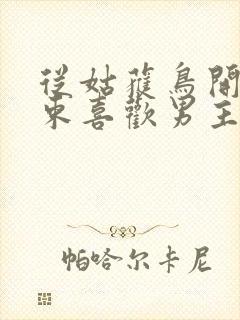 從姑獲鳥開
束喜歡男主
帕哈尔卡尼